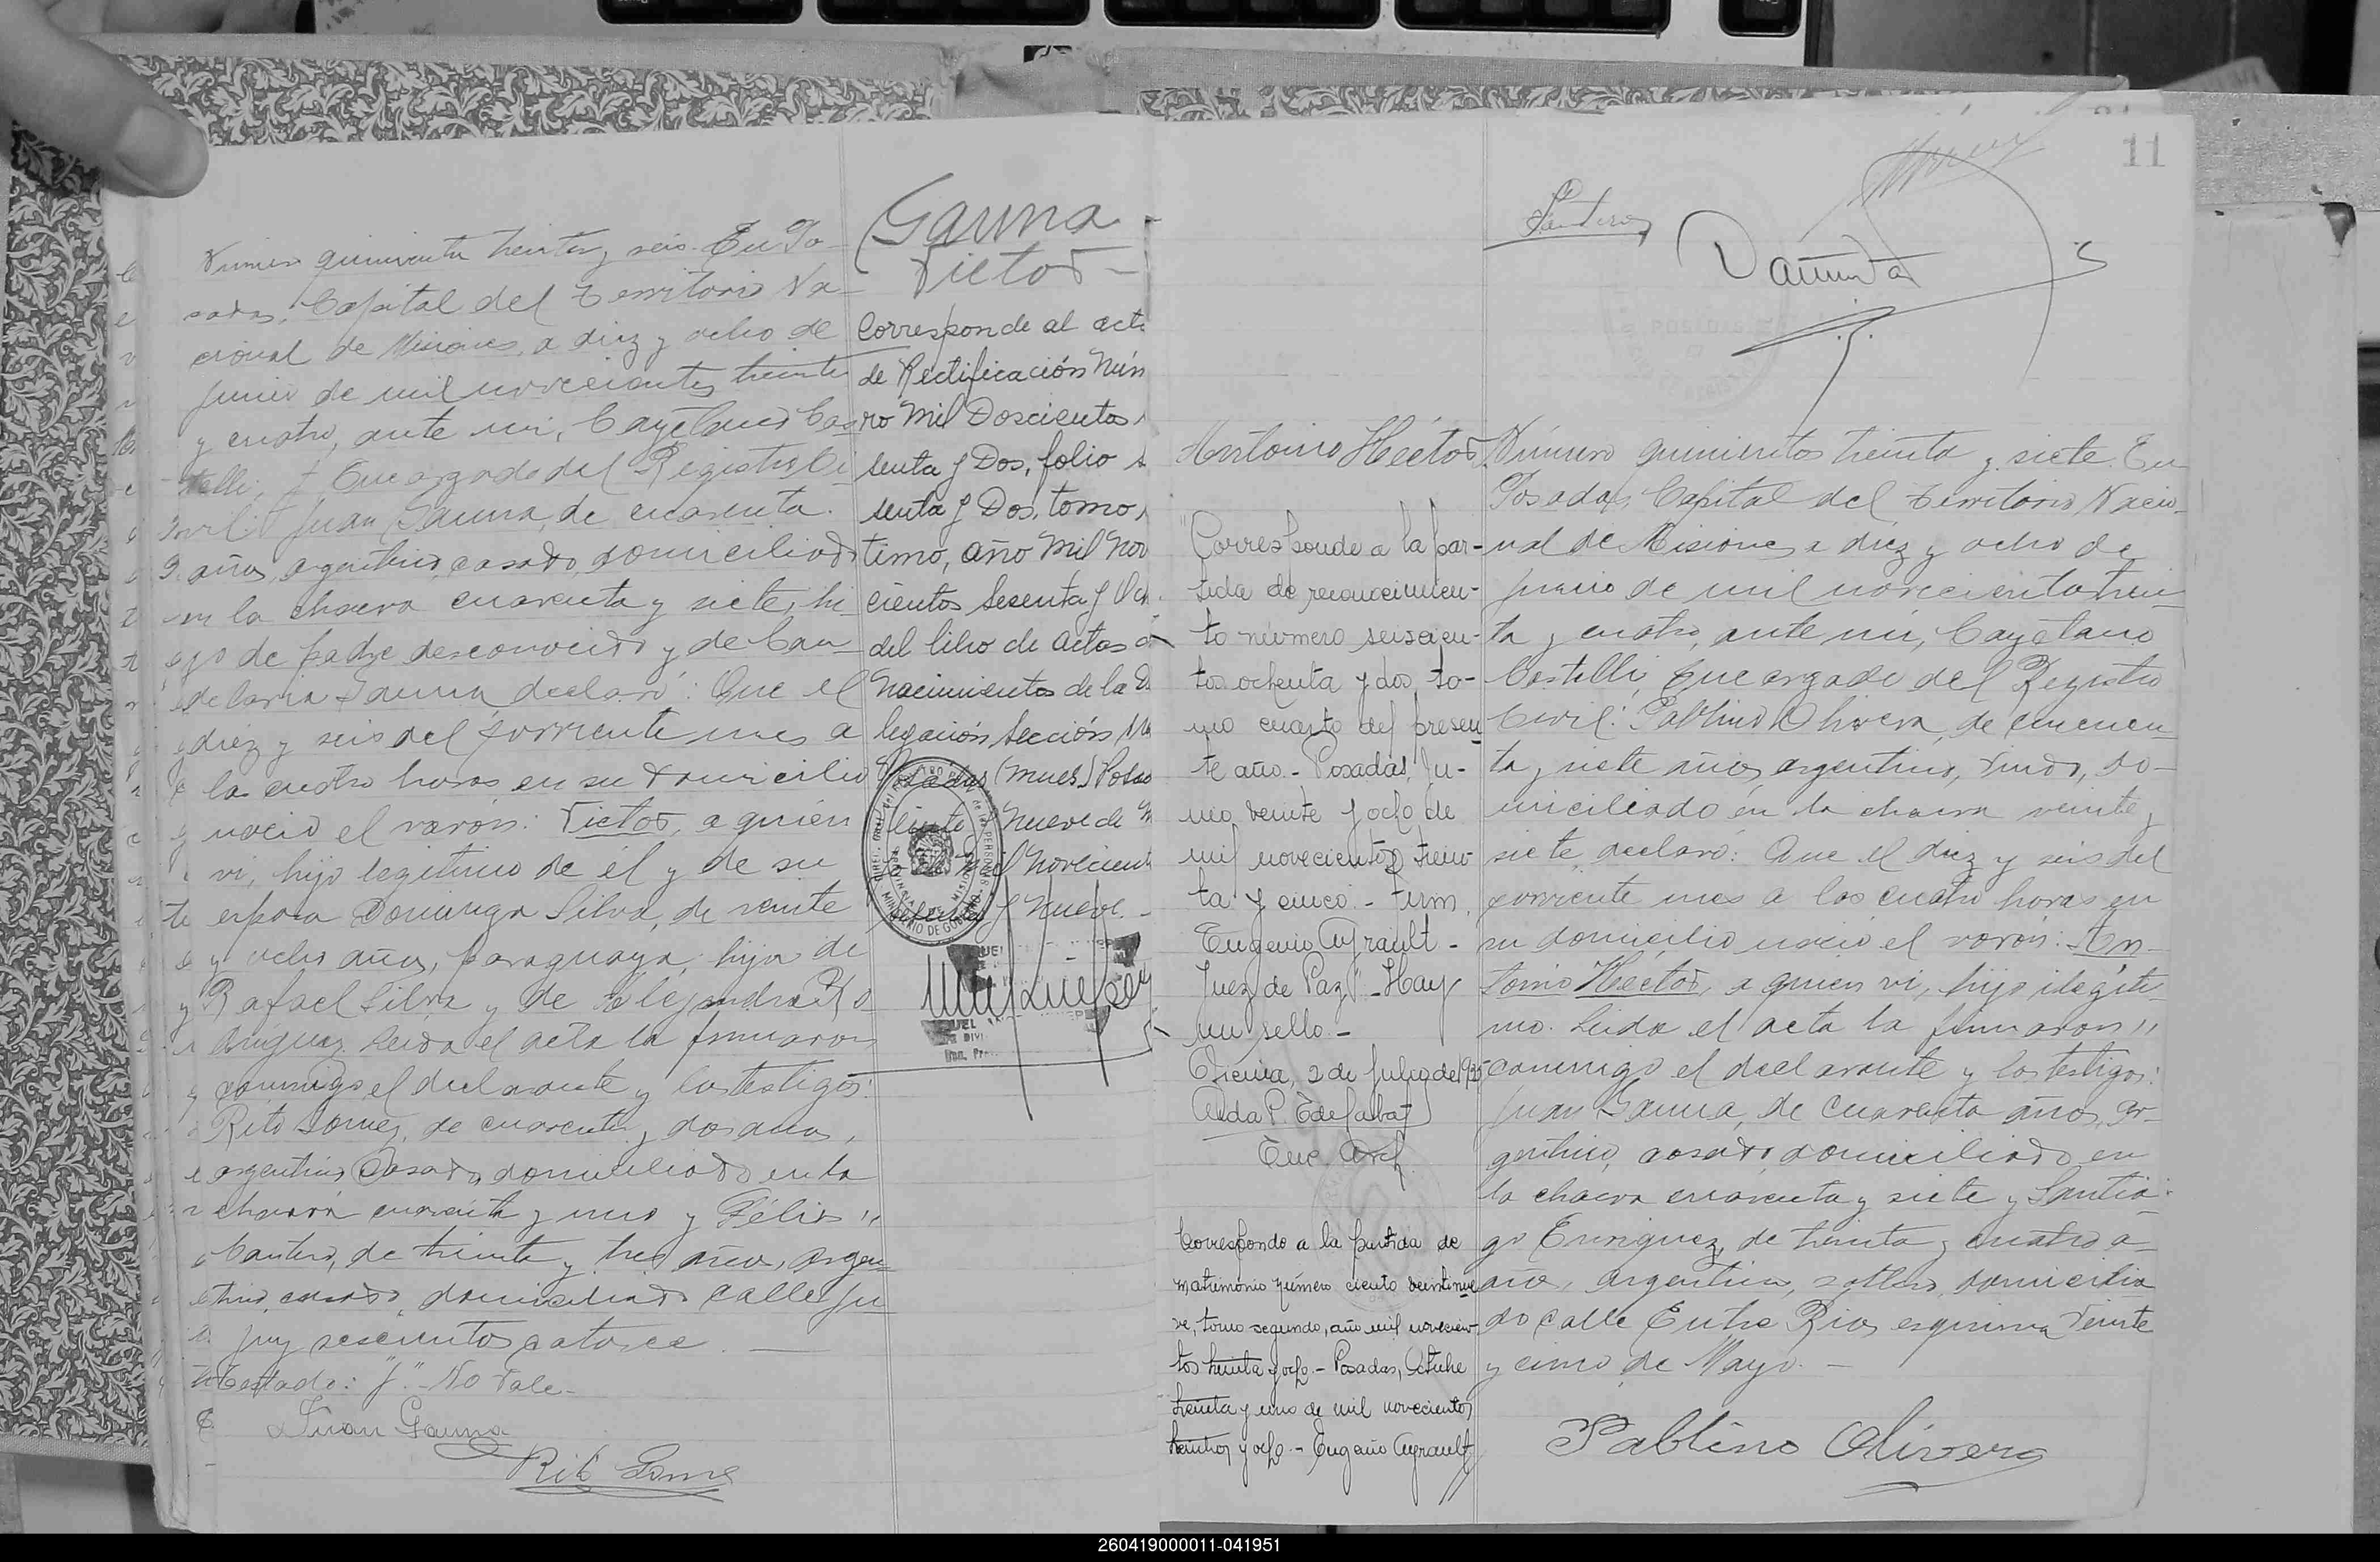 Gauna
Victor
Número quinientos treinta y seis. En Po-
sadas, Capital del Territorio Na-
cional de Misiones, a diez y ocho de
junio de mil novecientos treinta
y cuatro, ante mi, Cayetano Cas-
telli, Encargado del Registro Ci
vil: Juan Gauna, de cuarenta
años, argentino, casado, domiciliado
en la chacra cuarenta y siete, hi
jo de padre desconocido y de Can
delaria Gauna, declaró: Que el
diez y seis del corriente mes a
las cuatro horas en su domicilio
nació el varón: Victor, a quién
vi, hijo legítimo de él y de su
esposa Dominga Silva, de veinte
y ocho años, paraguaya, hija de
Rafael Silva y de Alejandra
Leida el acta la firmaron
conmigo el declarante y los testigos:
Rito Gomez, de cuarenta y dos años,
argentino, casado, domiciliado en la
chacra cuarenta y uno y Félix
Cantero, de treinta y tres años, argen-
tino, casado, domiciliado calle Ju
juy seiscientos catorce.
Testado: "y" - No vale -
Juan Gauna
Rito Gome
Corresponde al acta
de Rectificación Núm
ro Mil Doscientos
senta y Dos, folio
senta y Dos, tomo
timo, año Mil Nov
cientos Sesenta y Och
del libro de actas d
Nacimientos de la D
legación Sección
Posadas (Mnes.)
Nueve de
Mil Novecient
y Nueve. -
11
Antonio Héctor
"Corresponde a la par-
tida de reconocimien-
to número seiscien-
tos ochenta y dos, to-
mo cuarto del presen
te año. - Posadas, Ju-
nio veinte y ocho de
mil novecientos trein-
ta y cinco. - firm.
Eugenio Ayrault -
Juez de Paz" - Hay
un sello. -
Oficina, 2 de Julio de 1935
Enc. Arch.
Corresponde a la partida de
matrimonio número ciento veintinue
ve, tomo segundo, año mil novecien-
tos treinta y ocho. - Posadas, Octubre
treinta y uno de mil novecientos
treinta y ocho. - Eugenio Ayrault
Número quinientos treinta y siete. En
Posadas, Capital del Territorio Nacio-
nal de Misiones, a diez y ocho de
junio de mil novecientos trein-
ta y cuatro, ante mi, Cayetano
Castelli, Encargado del Registro
Civil: Pablino Olivera, de cincuen-
ta y siete años, argentino, viudo, do-
miciliado en la chacra veinte y
siete, declaró: Que el diez y seis del
corriente mes a las cuatro horas en
su domicilio nació el varón: An-
tonio Héctor, a quien vi, hijo ilegíti-
mo. Leida el acta la firmaron
conmigo el declarante y los testigos:
Juan Gauna, de cuarenta años, ar-
gentino, casado, domiciliado en
la chacra cuarenta y siete y Santia-
go Enriquez, de treinta y cuatro a-
ños, argentino, soltero, domicilia
do calle Entre Rios esquina Veinte
y cinco de Mayo. -
Pablino Olivera
260419000011-041951